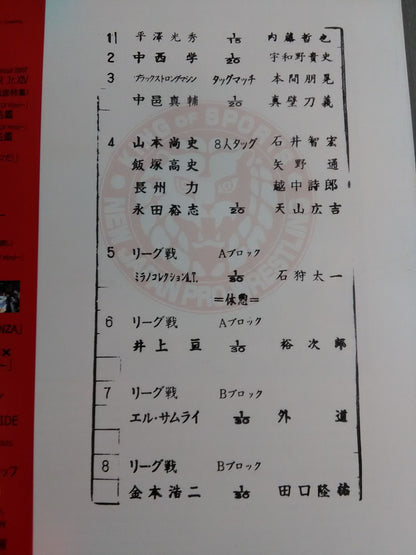 1 平澤光秀 1/15 内藤哲也
2 中西学 1/20 宇和野貴史
3 ブラックストロングマシン タッグマッチ 本間朋晃
中邑真輔 1/20 真壁刀義
4 山本尚史 8人タッグ 石井智宏
飯塚高史 矢野通
長州力 越中詩郎
永田裕志 1/30 天山広吉
5 リーグ戦 Aブロック
ミラノコレクションA.T. 1/30 石狩太一
=休憩=
6 リーグ戦 Aブロック
井上亘 1/30 裕次郎
7 リーグ戦 Bブロック
エル・サムライ 1/30 外道
8 リーグ戦 Bブロック
金本浩二 1/30 田口隆祐
KING OF SPORTS
NEW JAPAN PRO-WRESTLING